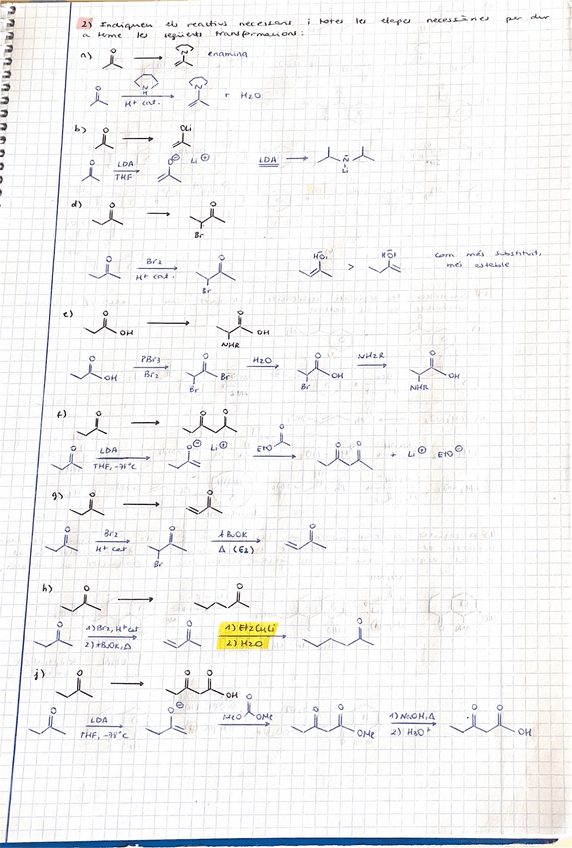 2) Indiqueu els reactius necessaris i totes les etapes necessàries per dur
a terme les següents transformacions:
a) O → N enamina
O N H H+ cat. N + H2O
b) O → OLi
O LDA THF O⊖ Li⊕ LDA → N Li
d) O → O Br
O Br2 H+ cat. O Br HO > HO com més substituït,
més estable
e) O OH → O OH NHR
O OH PBr3 Br2 O Br Br H2O O OH Br NH2R O OH NHR
f) O → O O
O LDA THF, -78°C O⊖ Li⊕ EtO O O O + Li⊕ EtO⊖
g) O → O
O Br2 H+ cat O Br tBuOK Δ (E2) O
h) O → O
O 1) Br2, H+ cat 2) tBuOK, Δ O 1) Et2CuLi 2) H2O O
j) O → O O OH
O LDA THF, -78°C O⊖ MeO O OMe O O OMe 1) NaOH, Δ 2) H3O+ O O OH